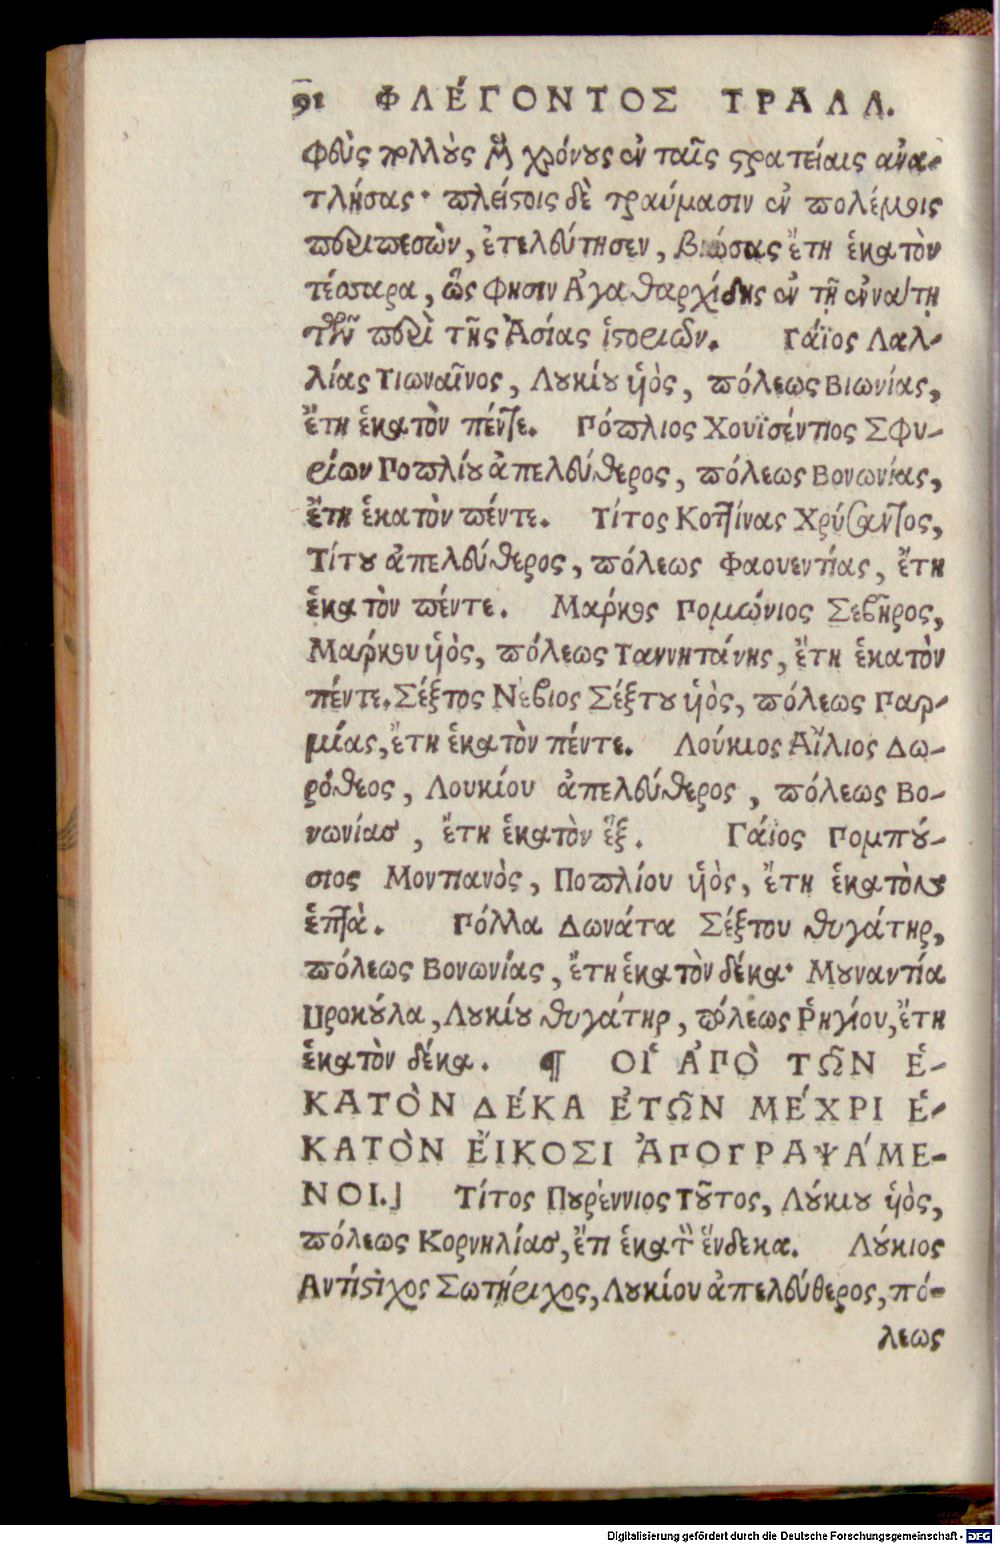 91 ΦΛΕΓΟΝΤΟΣ ΤΡΑΛΛ.
φοὺς πολλοὺς ἢ χρόνους ἐν ταῖς στρατείαις ἀνα-
τλήσας· πλείστοις δὲ τραύμασιν ἐν πολέμοις
περιπεσὼν, ἐτελεύτησεν, βιώσας ἔτη ἑκατὸν
τέσσαρα, ὥς φησιν Ἀγαθαρχίδης ἐν τῇ ἐννάτῃ
τῶν περὶ τῆς Ἀσίας ἱστοριῶν. Γάϊος Λαλ-
λίας Τιωναῖνος, Λουκίου ὑὸς, πόλεως Βιωνίας,
ἔτη ἑκατὸν πέντε. Πόπλιος Χουϊσέντιος Σφυ-
ρίων Ποπλίου ἀπελεύθερος, πόλεως Βονωνίας,
ἔτη ἑκατὸν πέντε. Τίτος Κοττίνας Χρύσαντος,
Τίτου ἀπελεύθερος, πόλεως Φαουεντίας, ἔτη
ἑκατὸν πέντε. Μάρκος Πομπώνιος Σεβῆρος,
Μάρκου ὑὸς, πόλεως Ταννητάνης, ἔτη ἑκατὸν
πέντε. Σέξτος Νέβιος Σέξτου ὑὸς, πόλεως Παρ-
μίας, ἔτη ἑκατὸν πέντε. Λούκιος Αἴλιος Δω-
ρόθεος, Λουκίου ἀπελεύθερος, πόλεως Βο-
νωνίας, ἔτη ἑκατὸν ἓξ. Γάϊος Πομπού-
σιος Μοντιανὸς, Ποπλίου ὑὸς, ἔτη ἑκατὸν
ἑπτὰ. Πόλλα Δωνάτα Σέξτου θυγάτηρ,
πόλεως Βονωνίας, ἔτη ἑκατὸν δέκα· Μουναντία
Προκούλα, Λουκίου θυγάτηρ, πόλεως Ῥηγίου, ἔτη
ἑκατὸν δέκα. ¶ ΟΙ ἈΠῸ ΤΩ͂Ν Ἑ-
ΚΑΤῸΝ ΔΈΚΑ ἘΤΩ͂Ν ΜΈΧΡΙ Ἑ-
ΚΑΤῸΝ ἘΊΚΟΣΙ ἈΠΟΓΡΑΨΆΜΕ-
ΝΟΙ.] Τίτος Πουρέννιος Τοῦτος, Λούκιου ὑὸς,
πόλεως Κορνηλίας, ἔτι ἑκατὸν ἕνδεκα. Λούκιος
Αντίστιχος Σωτήριχος, Λουκίου ἀπελεύθερος, πό-
λεως
Digitalisierung gefördert durch die Deutsche Forschungsgemeinschaft - DFG